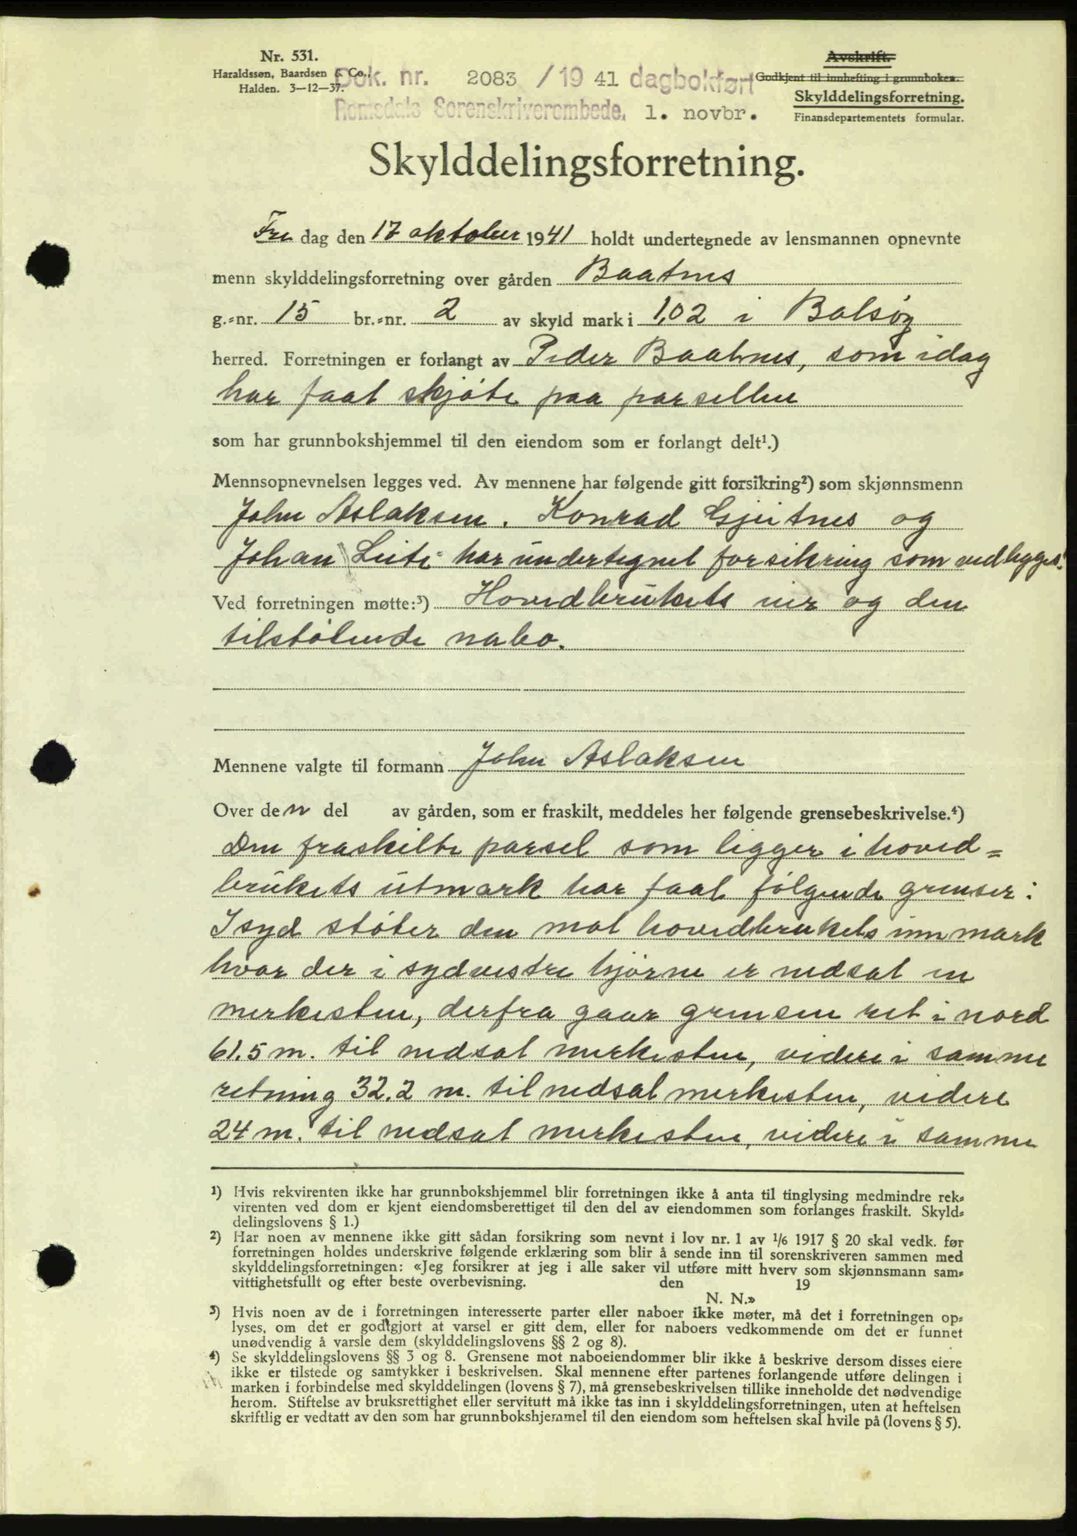 Nr. 531.
Haraldssøn, Baardsen & Co.,
Halden. 3—12—37.
Dok. nr. 2083 /19 41 dagbokført
Romsdals Sorenskriverembede, 1. novbr.
Avskrift.
Godkjent til innhefting i grunnboken.
Skylddelingsforretning.
Finansdepartementets formular.
Skylddelingsforretning.
Fre dag den 17 oktober 1941 holdt undertegnede av lensmannen opnevnte
menn skylddelingsforretning over gården Baatnes
g.-nr. 15 br.-nr. 2 av skyld mark i 1,02 i Bolsøy
herred. Forretningen er forlangt av Peder Baatnes, som idag
har faat skjøte paa parsellen
som har grunnbokshjemmel til den eiendom som er forlangt delt¹.)
Mennsopnevnelsen legges ved. Av mennene har følgende gitt forsikring²) som skjønnsmenn
John Aslaksen. Konrad Gjeitnes og
Johan Leite har undertegnet forsikring som vedlegges.
Ved forretningen møtte:³) Hovedbrukets eier og den
tilstøtende nabo.
Mennene valgte til formann John Aslaksen
Over den del av gården, som er fraskilt, meddeles her følgende grensebeskrivelse.⁴)
Den fraskilte parsel som ligger i hoved=
brukets utmark har faat følgende grenser:
I syd støter den mot hovedbrukets innmark
hvor der i sydvestre hjørne er nedsat en
merkesten, derfra gaar grensen ret i nord
61.5 m. til nedsat merkesten, videre i samme
retning 32.2 m. til nedsat merkesten, videre
24 m. til nedsat merkesten, videre i samme
¹) Hvis rekvirenten ikke har grunnbokshjemmel blir forretningen ikke å anta til tinglysing medmindre rek-
virenten ved dom er kjent eiendomsberettiget til den del av eiendommen som forlanges fraskilt. Skyld-
delingslovens § 1.)
²) Har noen av mennene ikke gitt sådan forsikring som nevnt i lov nr. 1 av ¹/₆ 1917 § 20 skal vedk. før
forretningen holdes underskrive følgende erklæring som blir å sende inn til sorenskriveren sammen med
skylddelingsforretningen: «Jeg forsikrer at jeg i alle saker vil utføre mitt hverv som skjønnsmann sam-
vittighetsfullt og efter beste overbevisning. den 19
N. N.»
³) Hvis noen av de i forretningen interesserte parter eller naboer ikke møter, må det i forretningen op-
lyses, om det er godtgjort at varsel er gitt dem, eller for naboers vedkommende om det er funnet
unødvendig å varsle dem (skylddelingslovens §§ 2 og 8).
⁴) Se skylddelingslovens §§ 3 og 8. Grensene mot naboeiendommer blir ikke å beskrive dersom disses eiere
ikke er tilstede og samtykker i beskrivelsen. Skal mennene efter partenes forlangende utføre delingen i
marken i forbindelse med skylddelingen (lovens § 7), må grensebeskrivelsen tillike inneholde det nødvendige
herom. Stiftelse av bruksrettighet eller servitutt må ikke tas inn i skylddelingsforretningen, uten at heftelsen
skriftlig er vedtatt av den som har grunnbokshjemmel til den eiendom som heftelsen skal hvile på (lovens § 5).